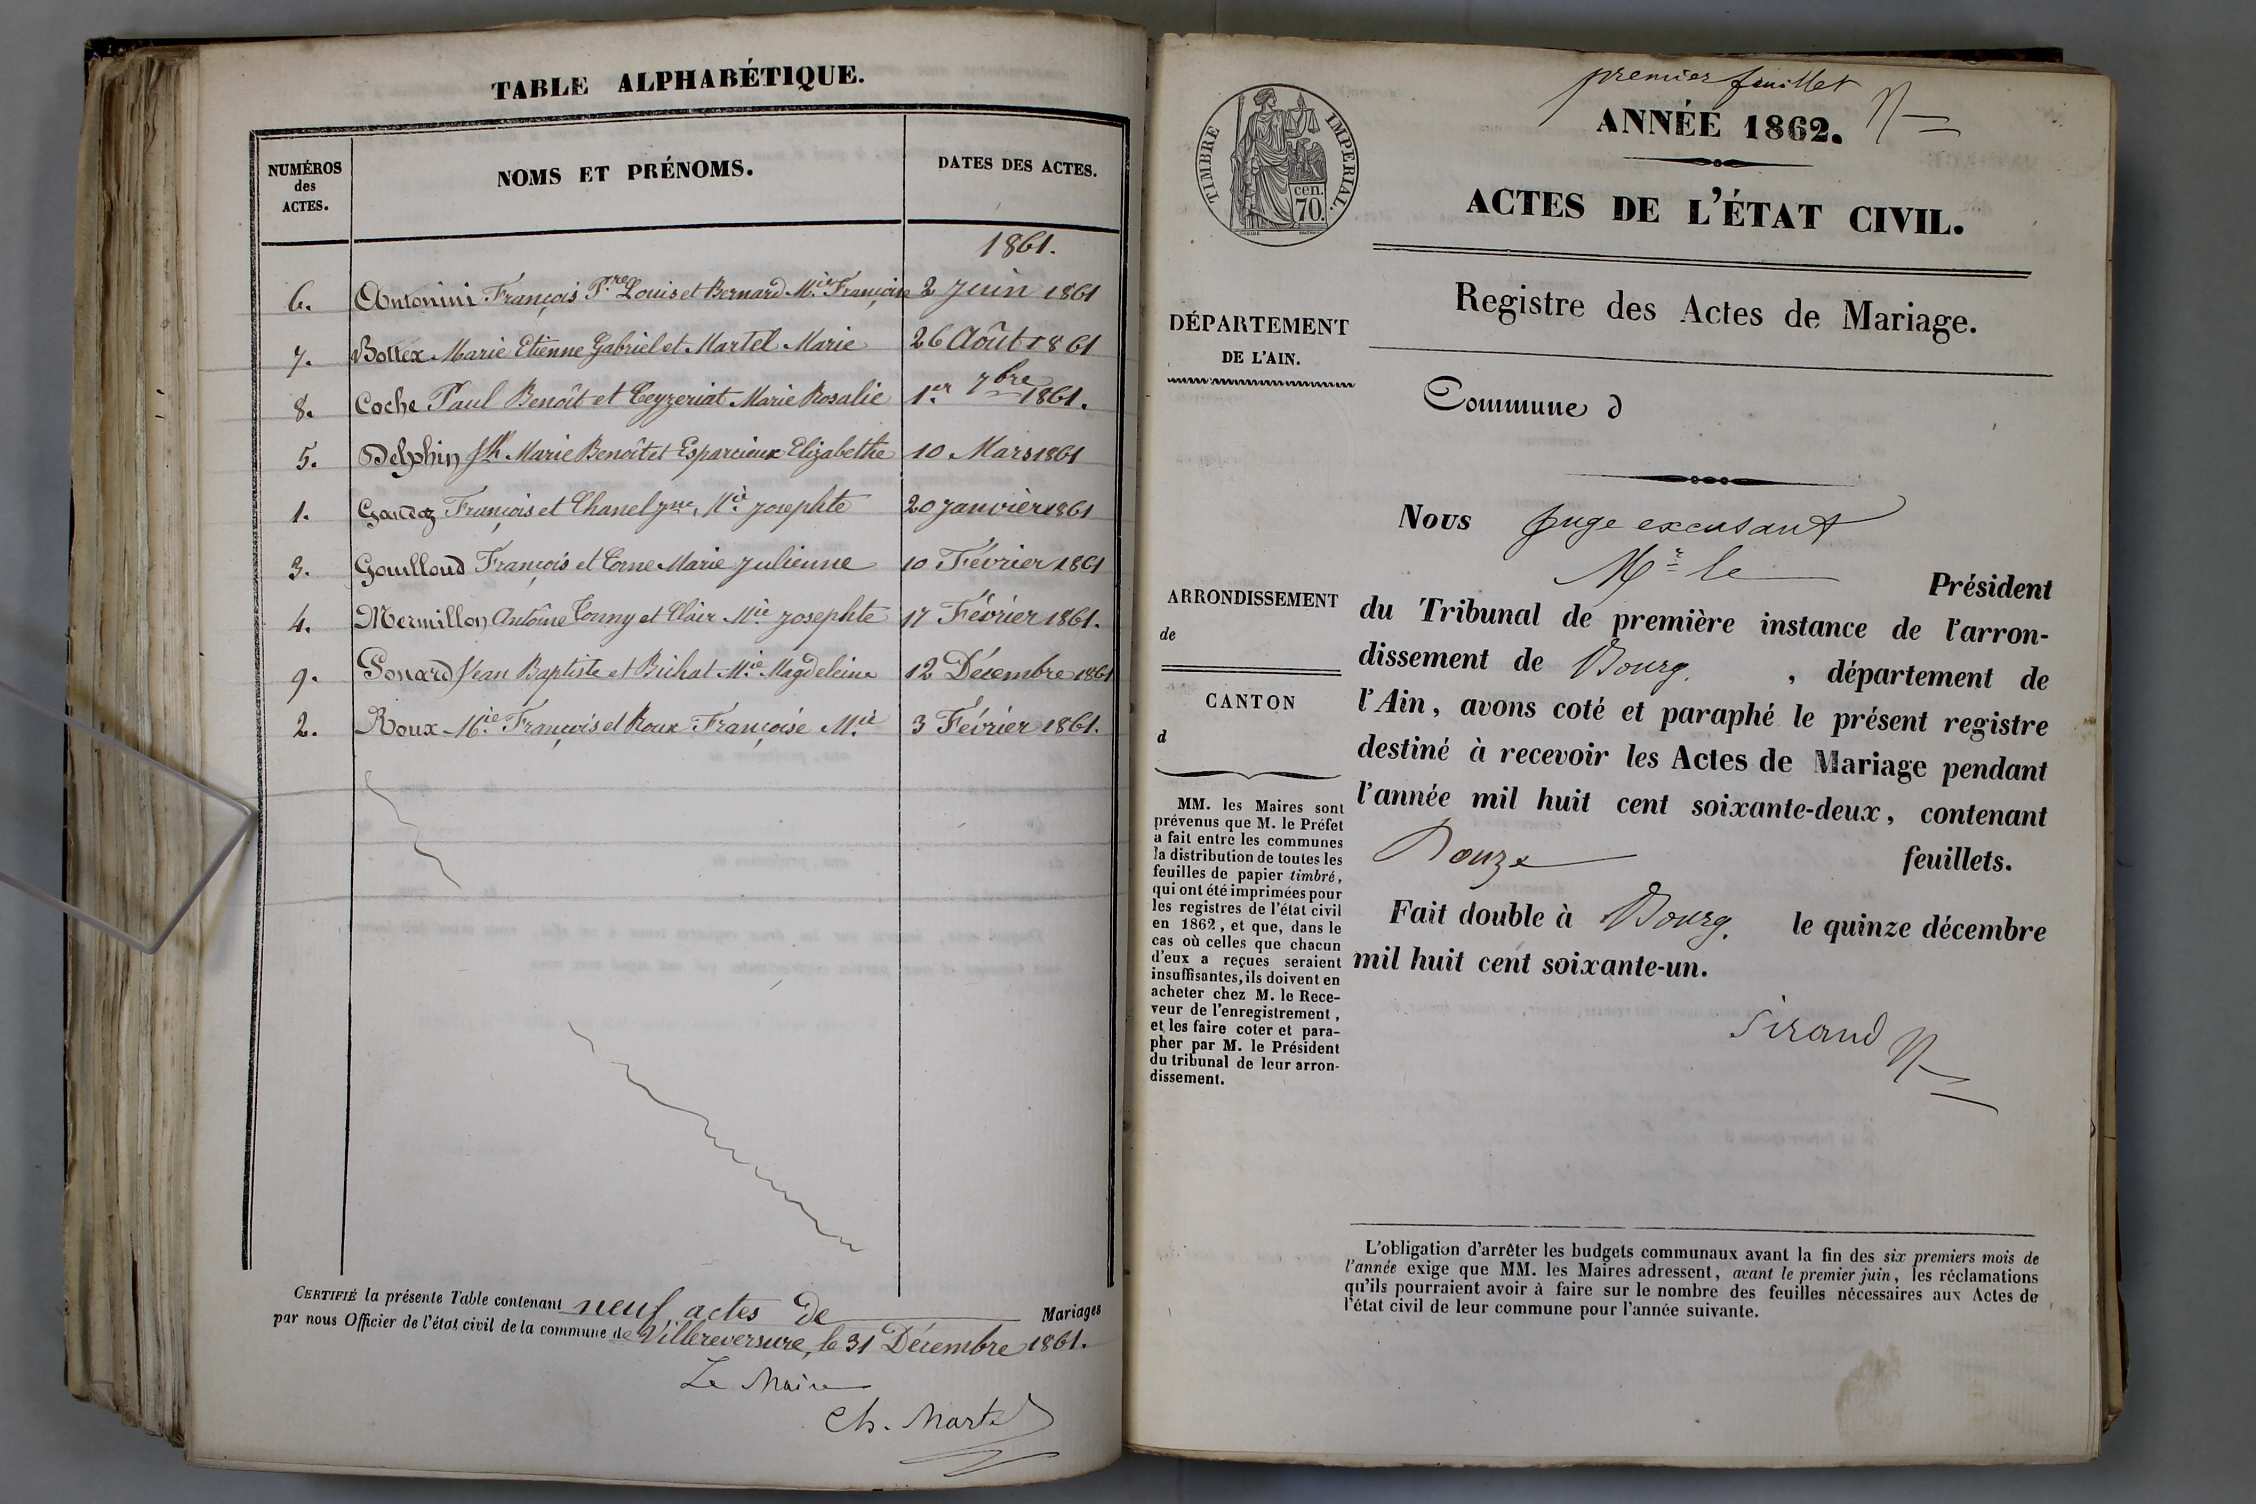 TABLE ALPHABÉTIQUE.
NUMÉROS
des
ACTES.
NOMS ET PRÉNOMS.
DATES DES ACTES.
1861.
6. Antonini François P.re Louis et Bernard M.ie Françoise 2 Juin 1861
7. Bottex Marie Etienne Gabriel et Martel Marie 26 Août 1861
8. Coche Paul Benoît et Teyzeriat Marie Rosalie 1.er 7bre 1861.
5. Delphin Marie Benoît et Esparcieux Elizabethe 10 Mars 1861
1. François et Chanel M.ie Josephte 20 Janvier 1861
3. Gouilloud François et Corne Marie Julienne 10 Février 1861
4. Mermillon Antoine Tonny et Clair M.ie Josephte 17 Février 1861.
9. Ponard Jean Baptiste et Bichat M.ie Magdeleine 12 Décembre 1861
2. Roux M.ie François et Roux Françoise M.ie 3 Février 1861.
CERTIFIÉ la présente Table contenant neuf actes de Mariages
par nous Officier de l'état civil de la commune de Villereversure, le 31 Décembre 1861.
Le Maire
Ch. Martel
premier feuillet
TIMBRE IMPÉRIAL.
cen.
70.
ANNÉE 1862.
ACTES DE L'ÉTAT CIVIL.
Registre des Actes de Mariage.
DÉPARTEMENT
DE L'AIN.
Commune d
Nous juge excusant
M.r le Président
ARRONDISSEMENT
de
CANTON
d
du Tribunal de première instance de l'arron-
dissement de Bourg. , département de
l'Ain, avons coté et paraphé le présent registre
destiné à recevoir les Actes de Mariage pendant
l'année mil huit cent soixante-deux, contenant
Douze feuillets.
Fait double à Bourg. le quinze décembre
mil huit cent soixante-un.
Sirand
MM. les Maires sont
prévenus que M. le Préfet
a fait entre les communes
la distribution de toutes les
feuilles de papier timbré,
qui ont été imprimées pour
les registres de l'état civil
en 1862, et que, dans le
cas où celles que chacun
d'eux a reçues seraient
insuffisantes, ils doivent en
acheter chez M. le Rece-
veur de l'enregistrement,
et les faire coter et para-
pher par M. le Président
du tribunal de leur arron-
dissement.
L'obligation d'arrêter les budgets communaux avant la fin des six premiers mois de
l'année exige que MM. les Maires adressent, avant le premier juin, les réclamations
qu'ils pourraient avoir à faire sur le nombre des feuilles nécessaires aux Actes de
l'état civil de leur commune pour l'année suivante.